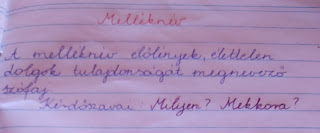 Melléknév
A melléknév élőlények, élettelen
dolgok tulajdonságát megnevező
szófaj
Kérdőszavai: Milyen? Mekkora?